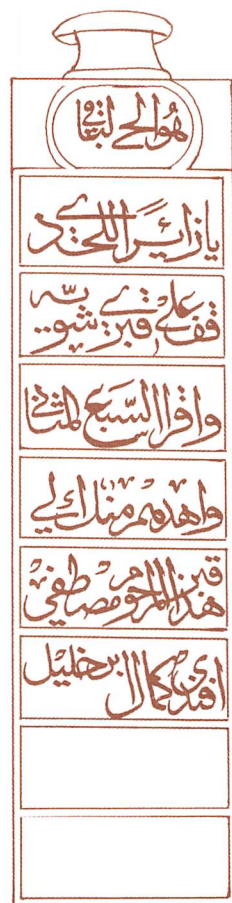 هو الحي الباقي
يا زائرا للحدي
قف على قبري شويه
واقرا السبع المثاني
واهدهم منك إلي
هذا قبر المرحوم مصطفي
افندي كمال ابن خليل